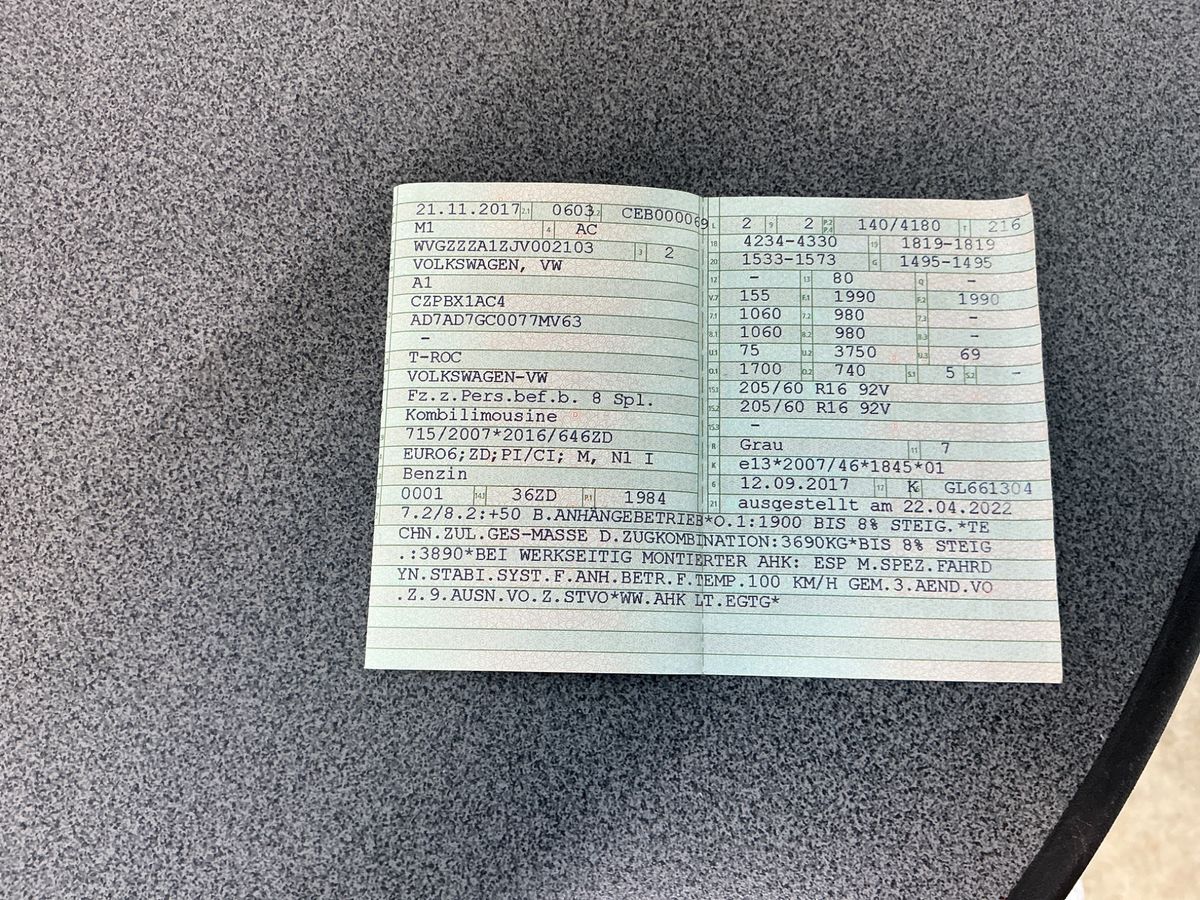 21.11.2017 2.1 0603 2.2 CEB000069
M1 4 AC
WVGZZZA1ZJV002103 3 2
VOLKSWAGEN, VW
A1
CZPBX1AC4
AD7AD7GC0077MV63
-
T-ROC
VOLKSWAGEN-VW
Fz.z.Pers.bef.b. 8 Spl.
Kombilimousine
715/2007*2016/646ZD
EURO6;ZD;PI/CI; M, N1 I
Benzin
0001 14.1 36ZD P.1 1984
L 2 9 2 P.2 P.4 140/4180 T 216
18 4234-4330 19 1819-1819
20 1533-1573 G 1495-1495
12 - 13 80 Q -
V.7 155 F.1 1990 F.2 1990
7.1 1060 7.2 980 7.3 -
8.1 1060 8.2 980 8.3 -
U.1 75 U.2 3750 U.3 69
O.1 1700 O.2 740 S.1 5 S.2 -
15.1 205/60 R16 92V
15.2 205/60 R16 92V
15.3 -
R Grau 11 7
K e13*2007/46*1845*01
6 12.09.2017 17 K 16 GL661304
21 ausgestellt am 22.04.2022
7.2/8.2:+50 B.ANHÄNGEBETRIEB*O.1:1900 BIS 8% STEIG.*TE
CHN.ZUL.GES-MASSE D.ZUGKOMBINATION:3690KG*BIS 8% STEIG
.:3890*BEI WERKSEITIG MONTIERTER AHK: ESP M.SPEZ.FAHRD
YN.STABI.SYST.F.ANH.BETR.F.TEMP.100 KM/H GEM.3.AEND.VO
.Z.9.AUSN.VO.Z.STVO*WW.AHK LT.EGTG*